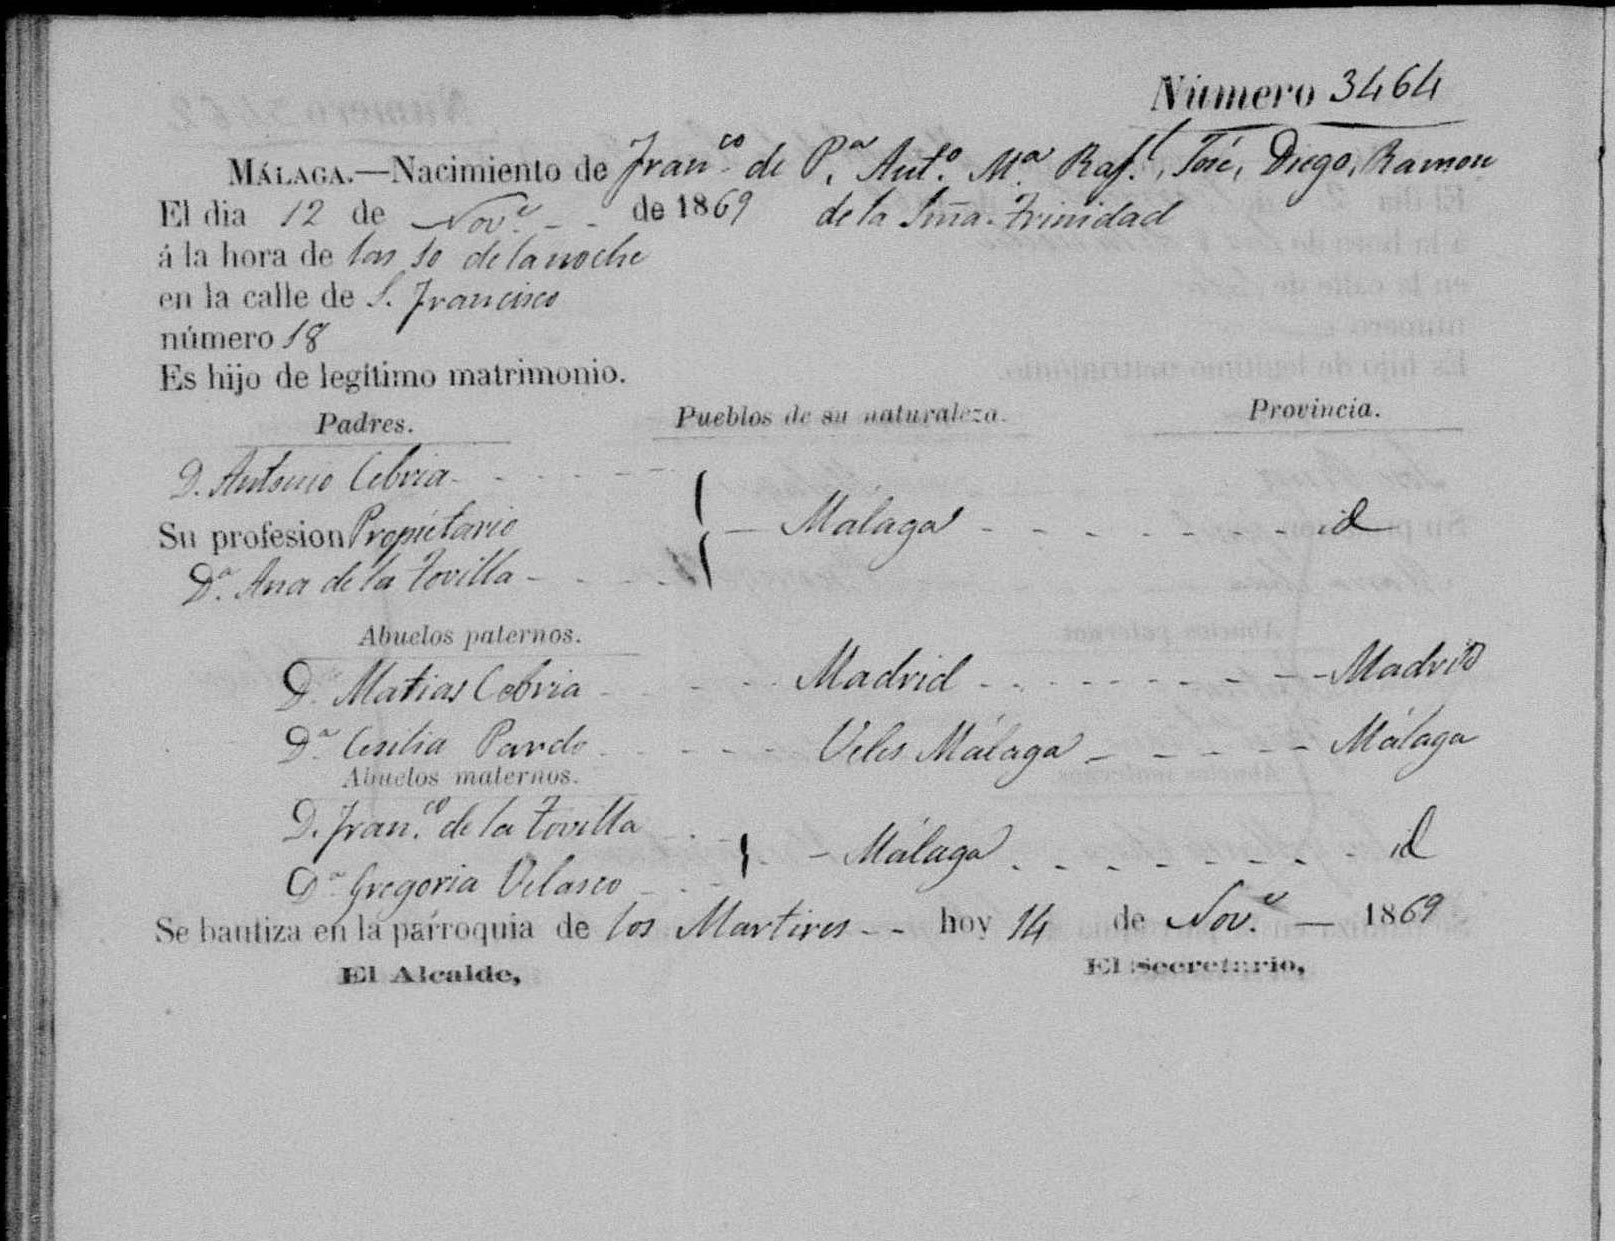 Número 3464
MÁLAGA.—Nacimiento de Fran.co de P.a Ant.o M.a Raf.l, José, Diego, Ramon
El dia 12 de Nov.e - - de 1869 de la Sma. Trinidad
á la hora de las 10 de la noche
en la calle de S. Francisco
número 18
Es hijo de legítimo matrimonio.
Padres. Pueblos de su naturaleza. Provincia.
D. Antonio Cebria - - - - -
Su profesion Propietario - Málaga - - - - - - - id
D.a Ana de la Tovilla - - - -
Abuelos paternos.
D. Matias Cebria - - - - - Madrid - - - - - - - - Madrid
D.a Cecilia Pardo - - - - - Veles Málaga - - - - - Málaga
Abuelos maternos.
D. Fran.co de la Tovilla - -
- Málaga - - - - - - - - id
D.a Gregoria Velasco - - -
Se bautiza en la parroquia de los Martires - - hoy 14 de Nov.e — 1869
El Alcalde, El Secretario,